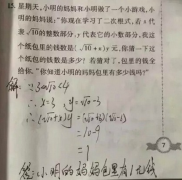 星期天,小明的妈妈和小明做了一个小游戏,小
明的妈妈说:“你现在学习了二次根式,若x代
表√10的整数部分,y代表它的小数部分,我这
个纸包里的钱数是(√10+x)y元,你猜一下这
个纸包里的钱数是多少?若猜对了,包里的钱全
给你.”你知道小明的妈妈包里有多少钱吗?
解:∵3<√10<4
∴x=3 y=√10-3
∴(√10+x)y=(√10+3)(√10-3)
=10-9
=1
7
答:小明的妈妈包里有1元钱